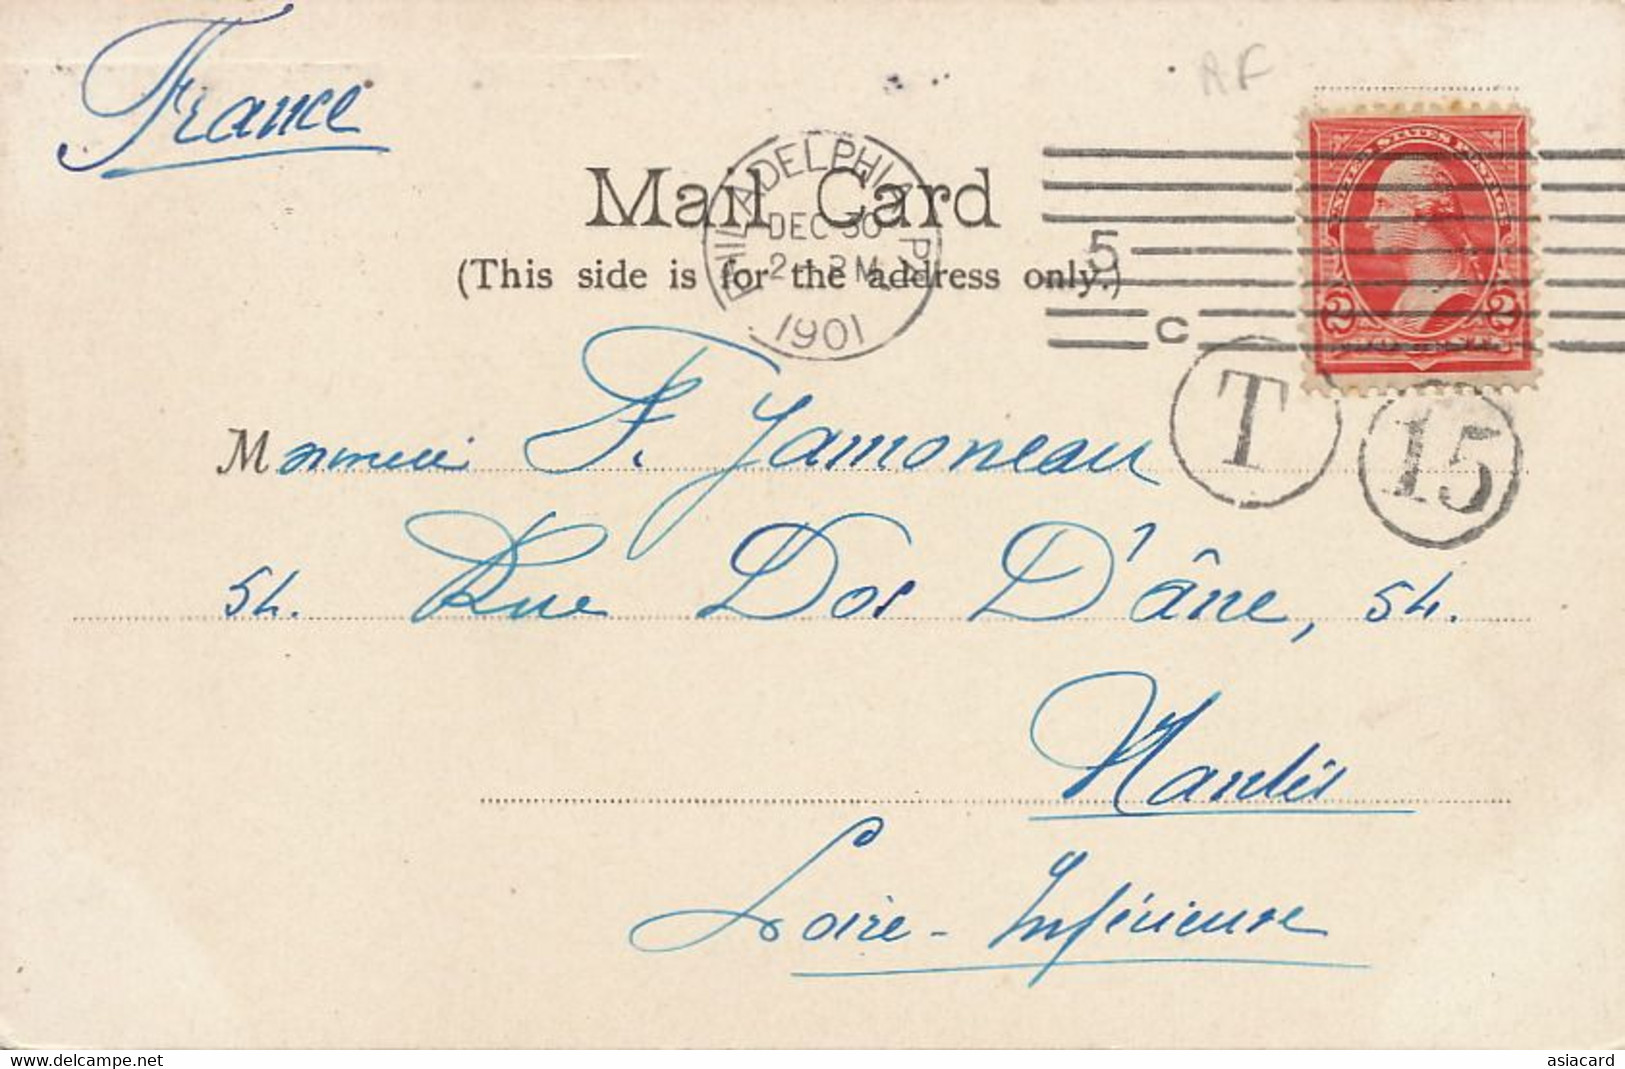 France
RF
Mail Card
(This side is for the address only.)
PHILADELPHIA PA
DEC 30
2 - PM
1901
5
C
UNITED STATES POSTAGE
2 2
T
15
Monsieur F. Jamoneau
54. Rue Dos D'âne, 54.
Nantes
Loire-Inférieure
delcampe.net
asiacard